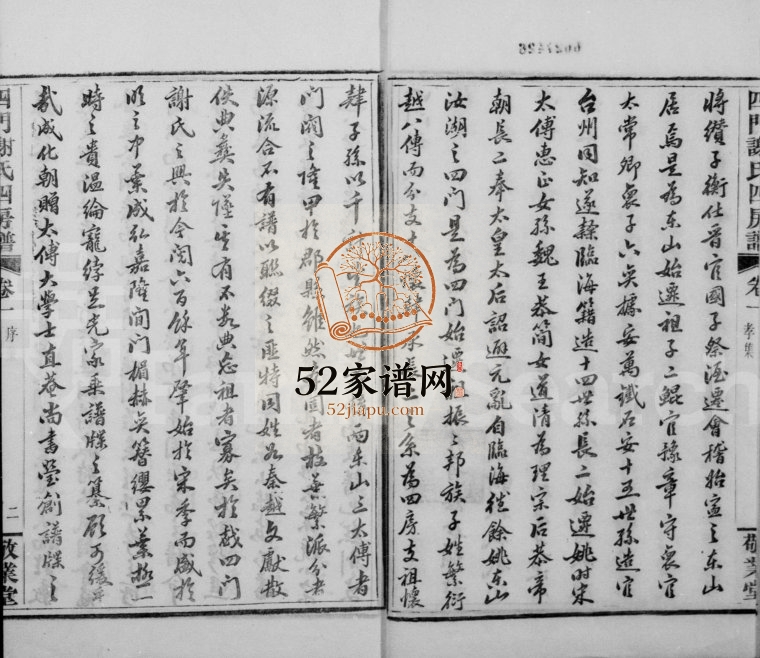 將纘子衡仕晉官國子祭酒遷會稽始寧之東山
居焉是為東山始遷祖子二鯤官豫章守裒官
太常卿裒子六奕據安萬鐵石安十五世孫造官
台州同知遂隸臨海籍造十四世孫長二始遷姚時宋
太傅惠正女孫魏王恭簡女道清為理宗后恭帝
朝長二奉太皇太后詔避元亂自臨海徙餘姚東山
汝湖之四門是為四門始遷祖振之邦族子姓繁衍
越八傳而分支 之系為四房支祖懷
肄子孫以千 而東山三太傅者
門閥之隆甲於郡縣雖然 固者枝益繁派分者
源流合不有譜以聯綴之匪特同姓如秦越文獻散
佚典彝失墜 有不數典忘祖者寡矣於戲四門
謝氏之興於今閱六百餘年肇始於宋季而盛於
明之中葉成弘嘉隆間門楣赫奕簪纓累葉極一
時之貴溫綸寵綍足光家乘譜牒之纂顧可緩乎
哉成化朝贈太傅大學士直菴尚書瑩創譜牒之
四門謝氏四房譜
卷一
序
二
敬業堂
四門謝氏四房譜
卷一
孝集
敬業堂
52家谱网
52jiapu.com